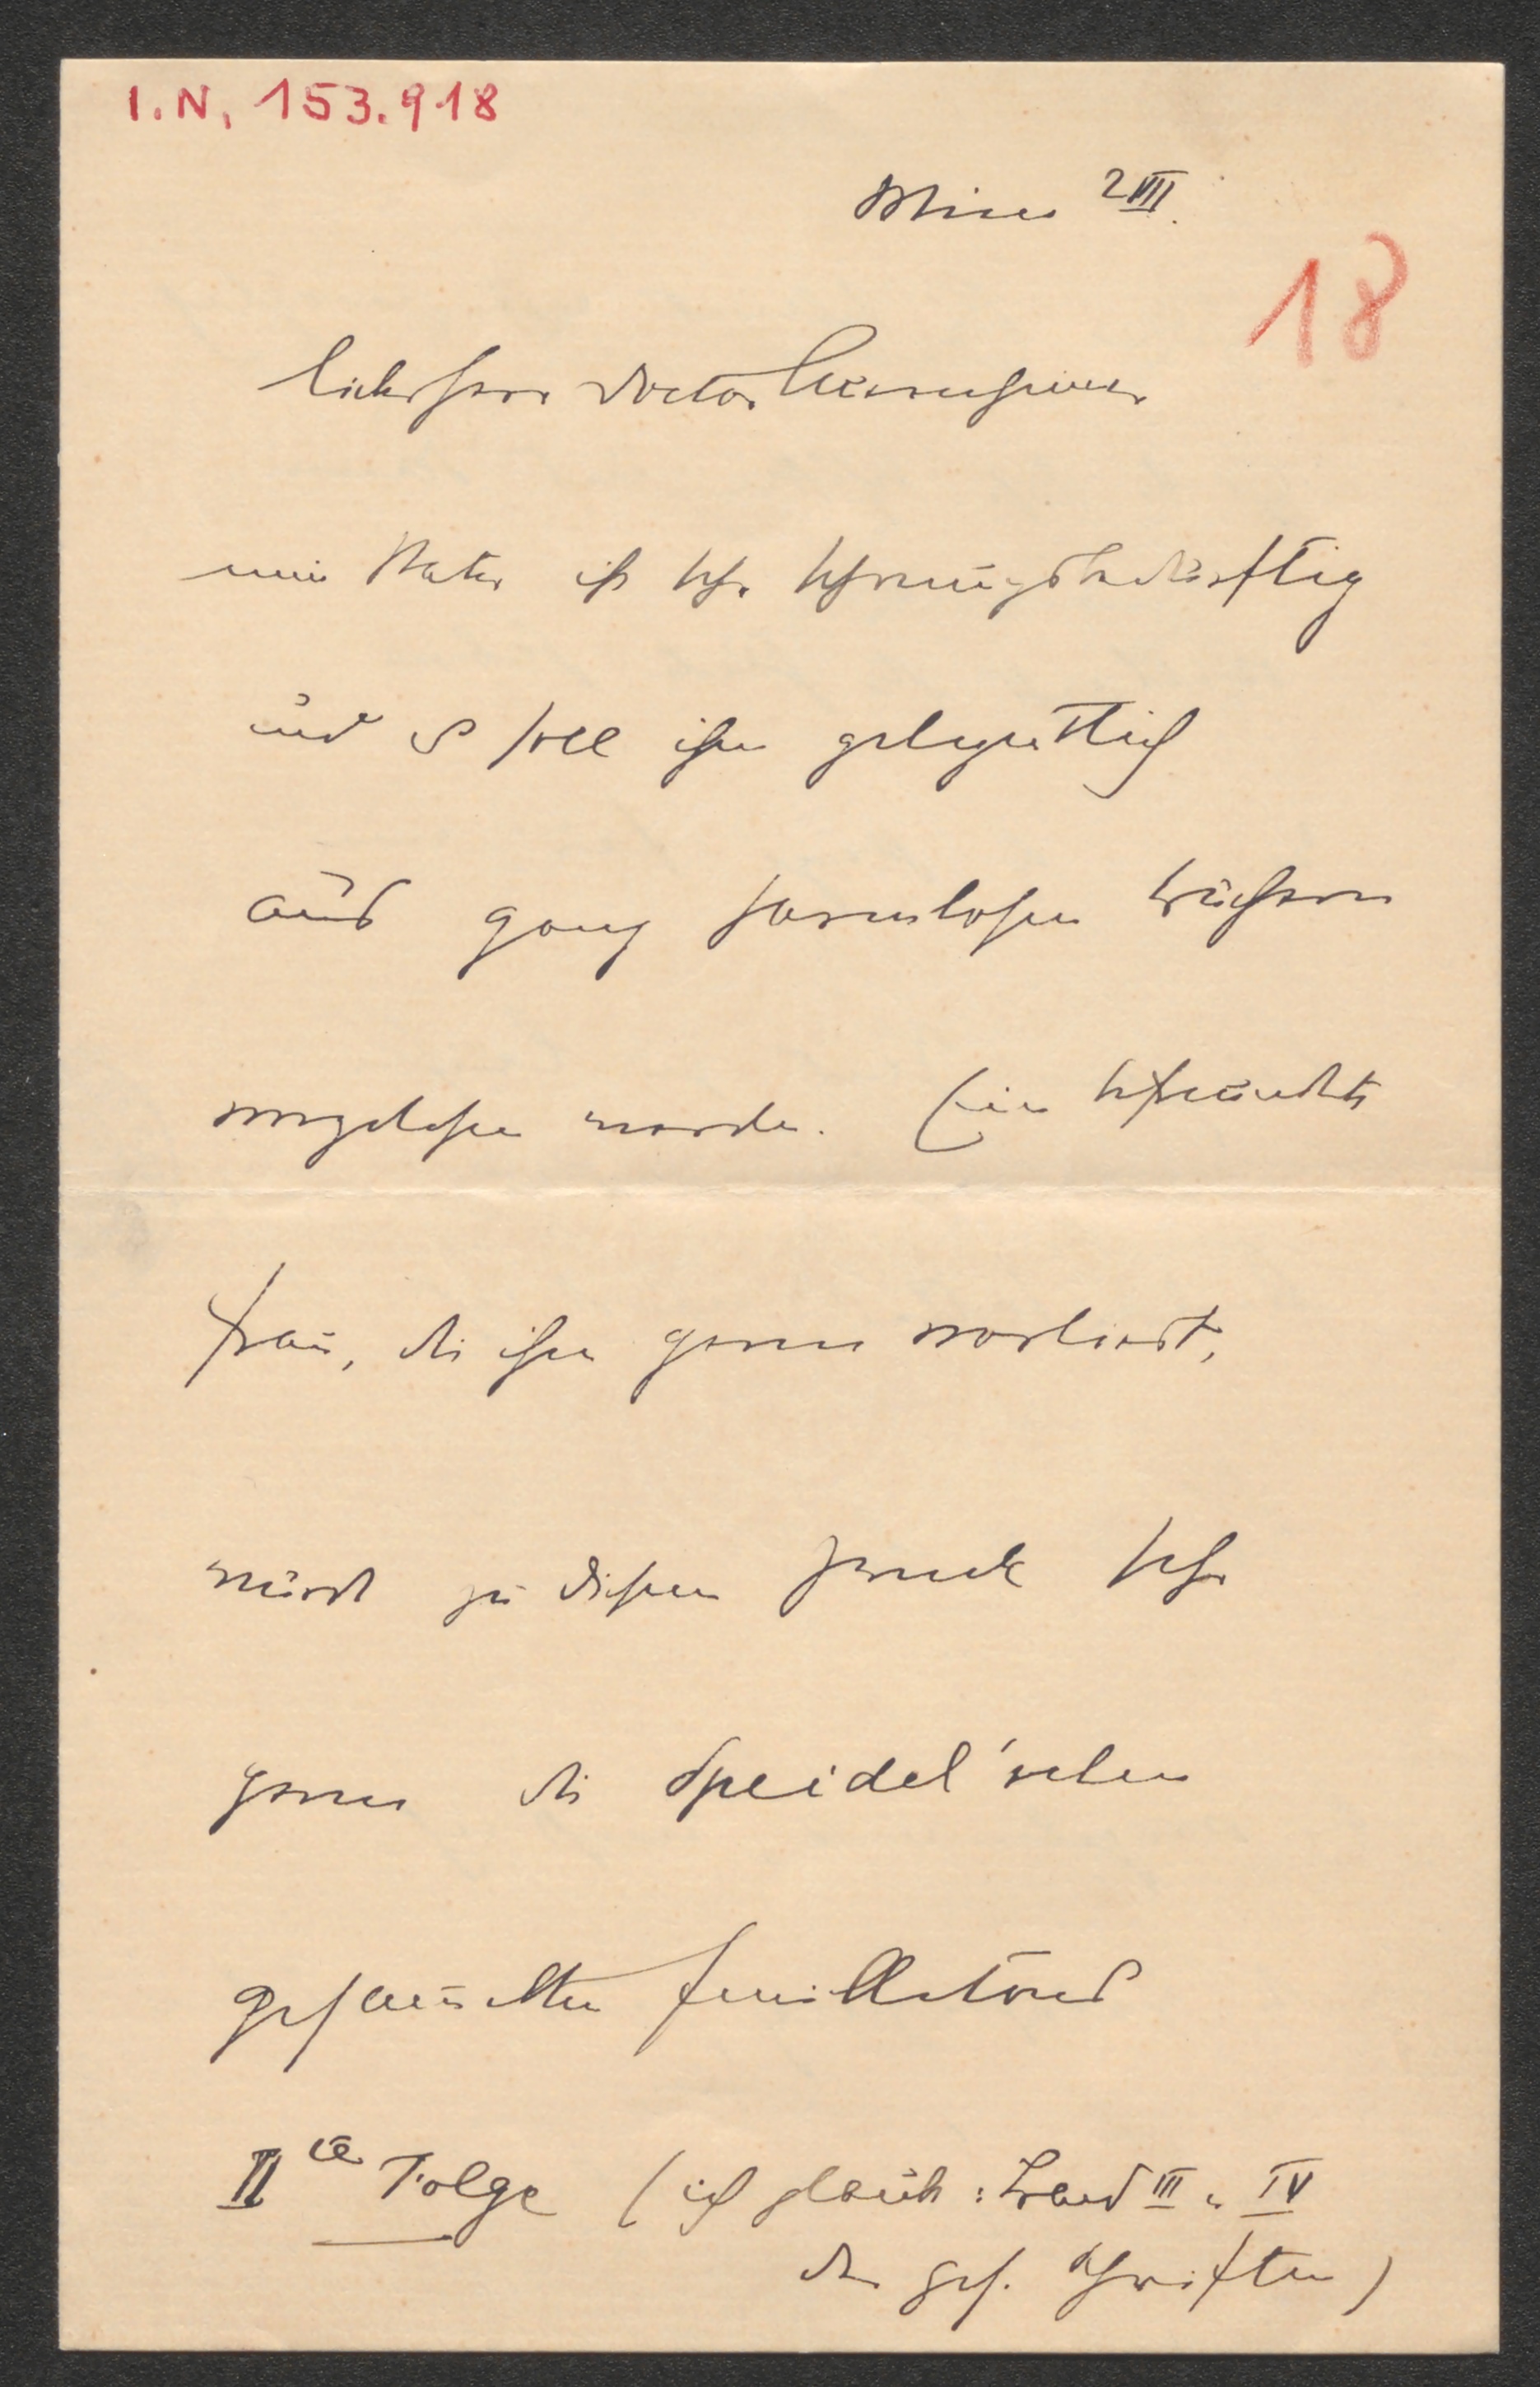 I.N. 153.918
Wien 2 VII.
18
lieber Herr Doctor Auernheimer
mein Vater ist sehr schonungsbedürftig
und es soll ihm gelegentlich
aus ganz harmlosen Büchern
vorgelesen werden. Eine befreundete
Frau, die ihm gerne vorliest,
würde zu diesem Zweck sehr
gerne die Speidel'schen
gesammelten Feuilletons
IIte Folge (ich glaube: Band III u. IV
der ges. Schriften)